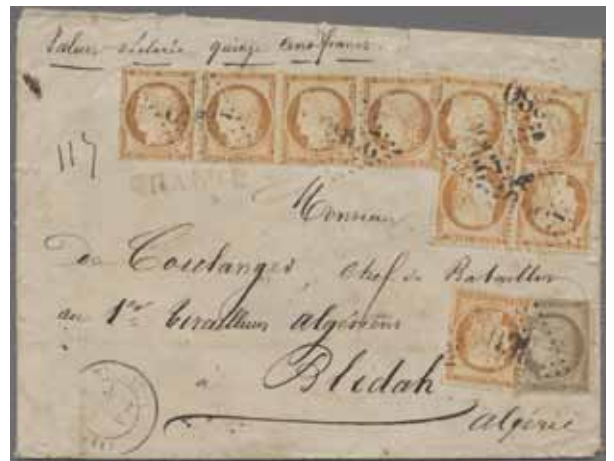 Valeur déclarée quinze cents francs.
117
CHARGÉ
Monsieur
de Coulanges, chef de Bataillon
au 1er tirailleurs algériens
à
Blidah
algérie